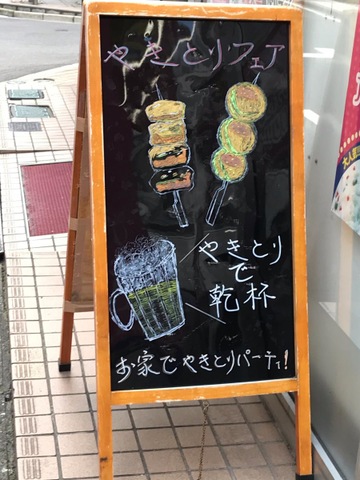 やきとりフェア
やきとり
で
乾杯
お家でやきとりパーティ!